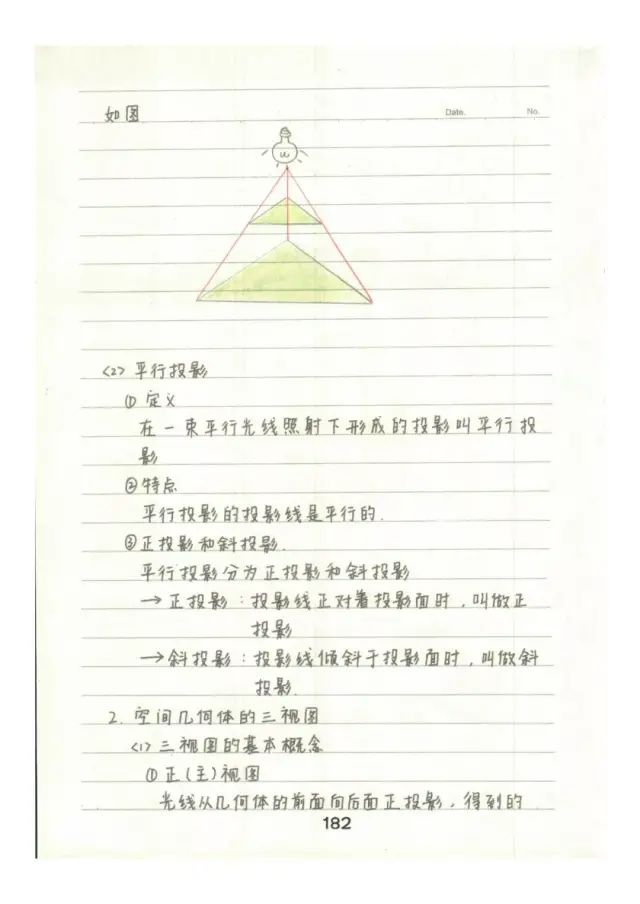 如图
Date. No.
<2> 平行投影
① 定义
在一束平行光线照射下形成的投影叫平行投
影
②特点
平行投影的投影线是平行的.
③正投影和斜投影.
平行投影分为正投影和斜投影
→ 正投影：投影线正对着投影面时，叫做正
投影
→斜投影：投影线倾斜于投影面时，叫做斜
投影.
2. 空间几何体的三视图
<1> 三视图的基本概念
①正(主)视图
光线从几何体的前面向后面正投影，得到的
182